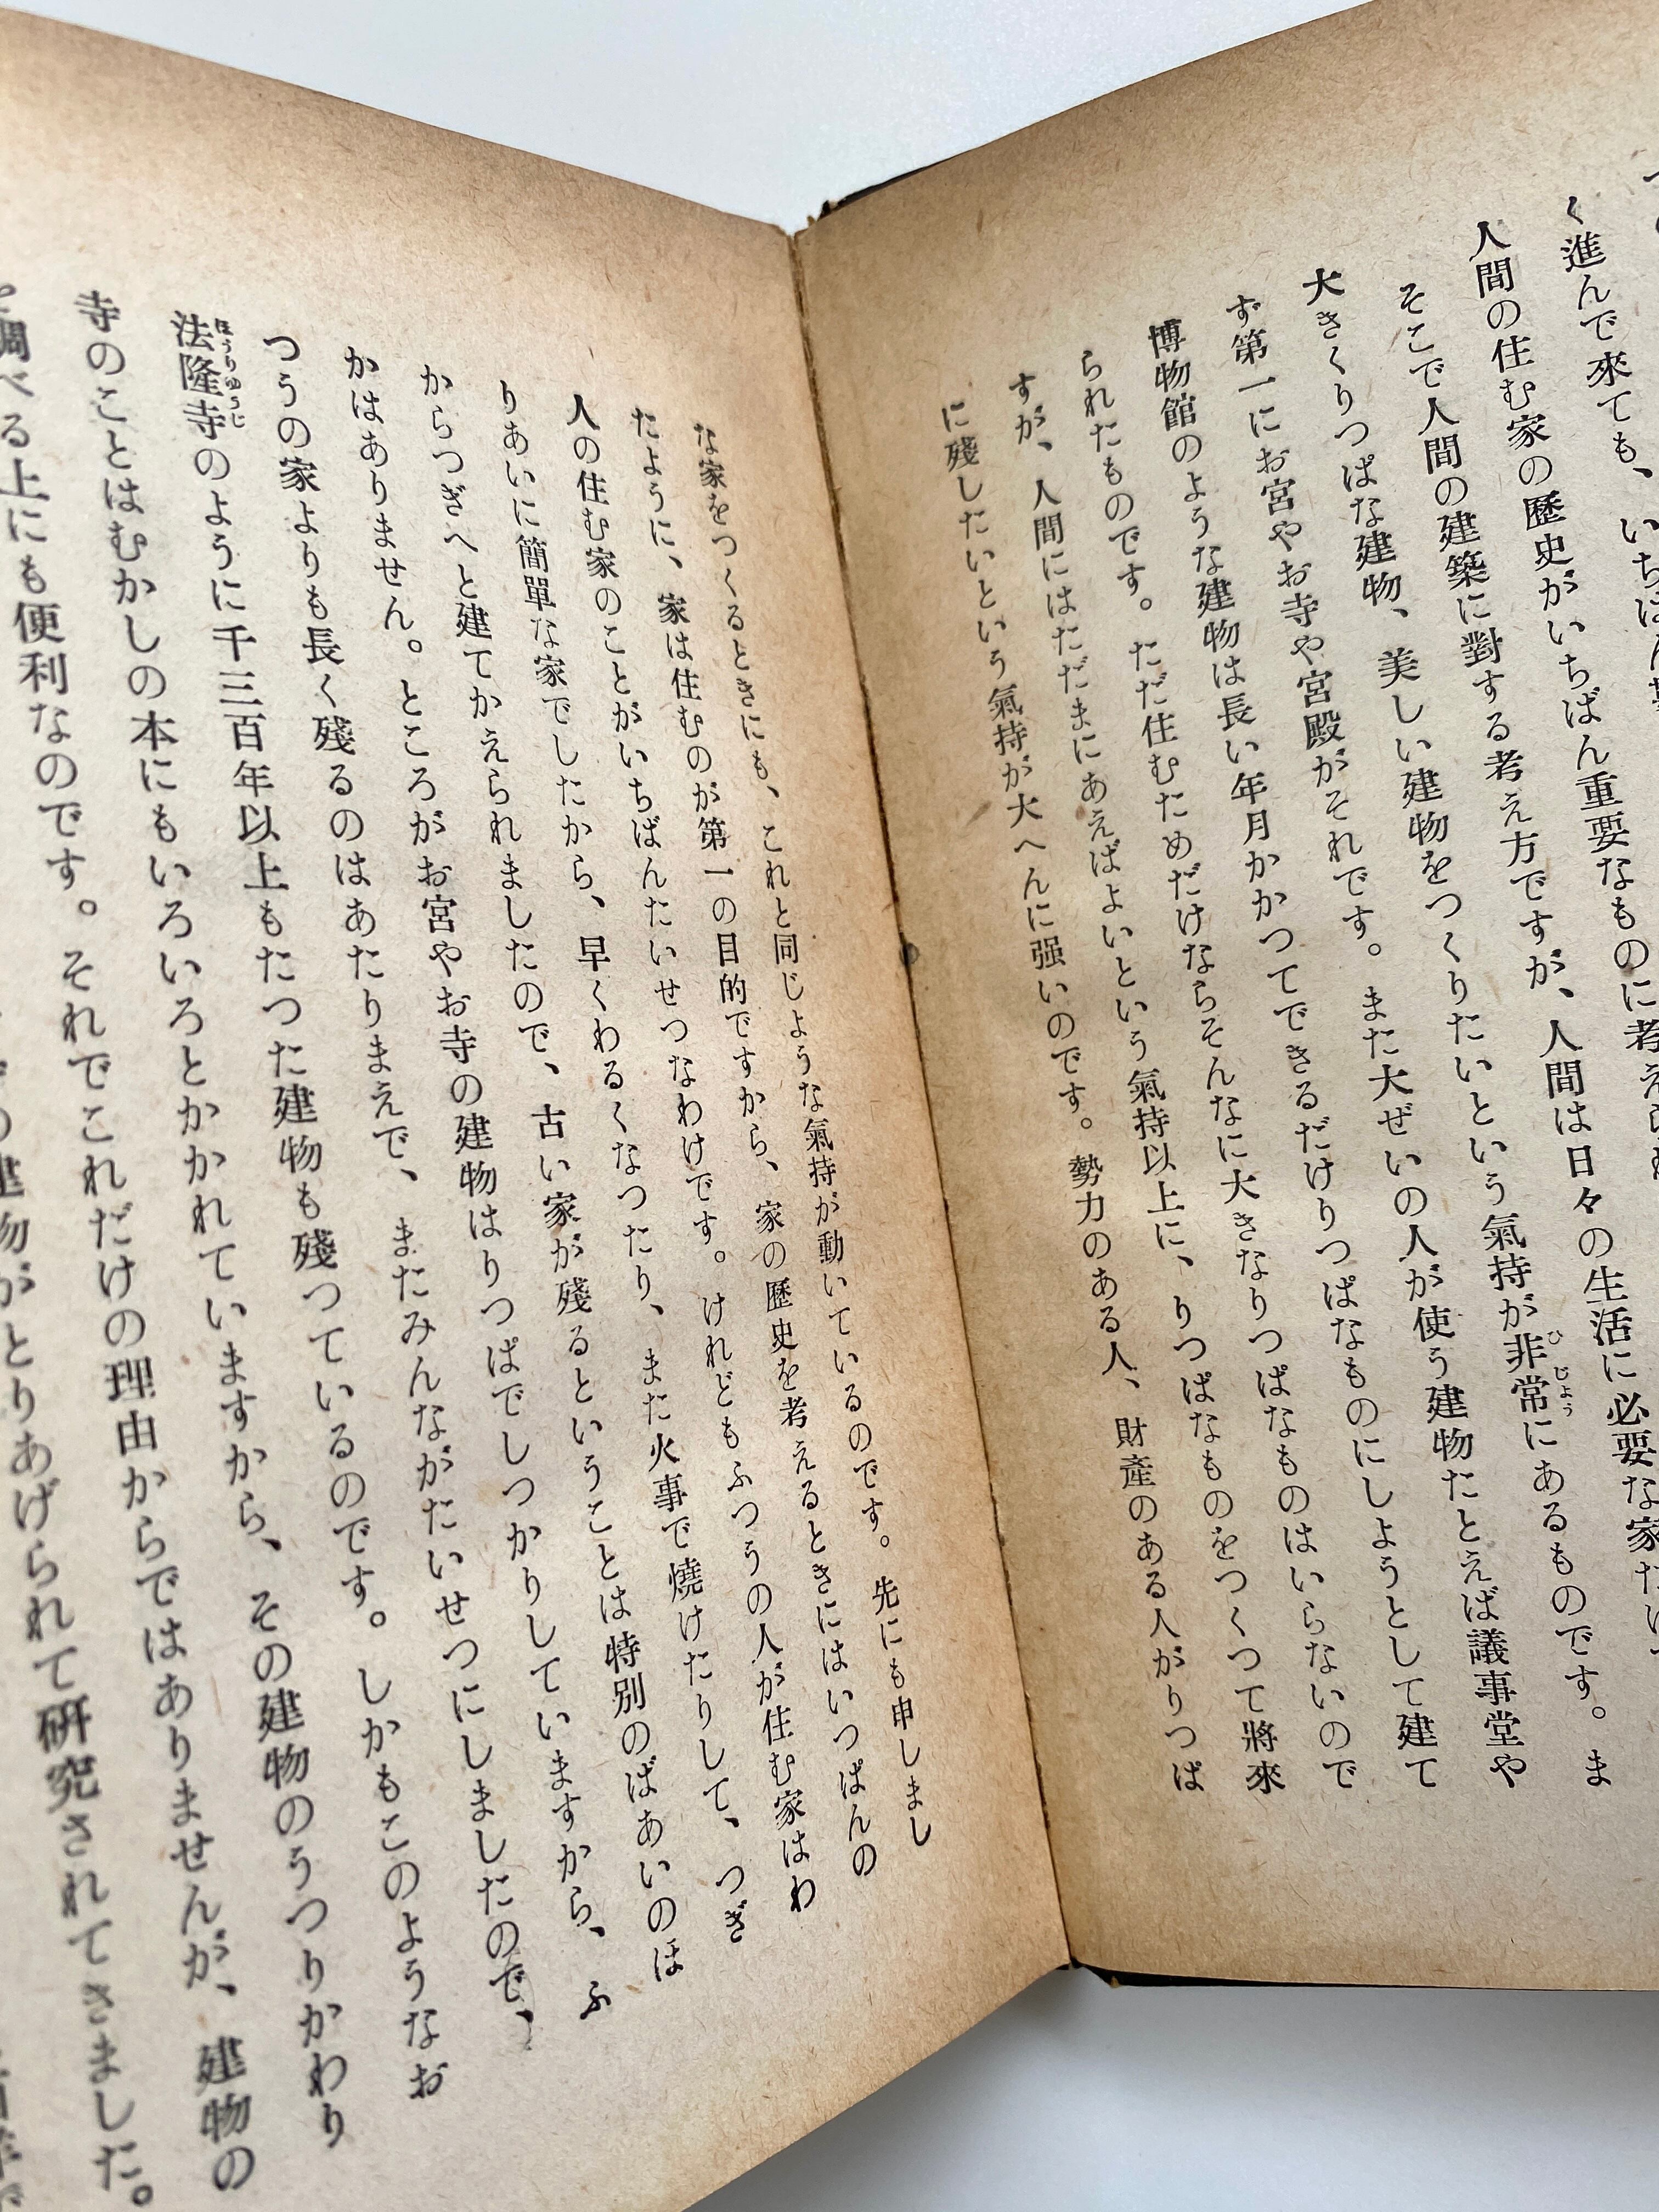 く進んで來ても、いちばん
人間の住む家の歷史がいちばん重要なものに考えられ
そこで人間の建築に對する考え方ですが、人間は日々の生活に必要な家だけで
大きくりつぱな建物、美しい建物をつくりたいという氣持が非常にあるものです。ま
ず第一にお宮やお寺や宮殿がそれです。また大ぜいの人が使う建物たとえば議事堂や
博物館のような建物は長い年月かかつてできるだけりつぱなものにしようとして建て
られたものです。ただ住むためだけならそんなに大きなりつぱなものはいらないので
すが、人間にはただまにあえばよいという氣持以上に、りつぱなものをつくつて將來
に殘したいという氣持が大へんに强いのです。勢力のある人、財產のある人がりつぱ
な家をつくるときにも、これと同じような氣持が動いているのです。先にも申しまし
たように、家は住むのが第一の目的ですから、家の歷史を考えるときにはいつぱんの
人の住む家のことがいちばんたいせつなわけです。けれどもふつうの人が住む家はわ
りあいに簡單な家でしたから、早くわるくなつたり、また火事で燒けたりして、つぎ
からつぎへと建てかえられましたので、古い家が殘るということは特別のばあいのほ
かはありません。ところがお宮やお寺の建物はりつぱでしつかりしていますから、ふ
つうの家よりも長く殘るのはあたりまえで、またみんながたいせつにしましたので、
法隆寺のように千三百年以上もたつた建物も殘つているのです。しかもこのようなお
寺のことはむかしの本にもいろいろとかかれていますから、その建物のうつりかわり
を調べる上にも便利なのです。それでこれだけの理由からではありませんが、建物の
建物がとりあげられて研究されてきました。